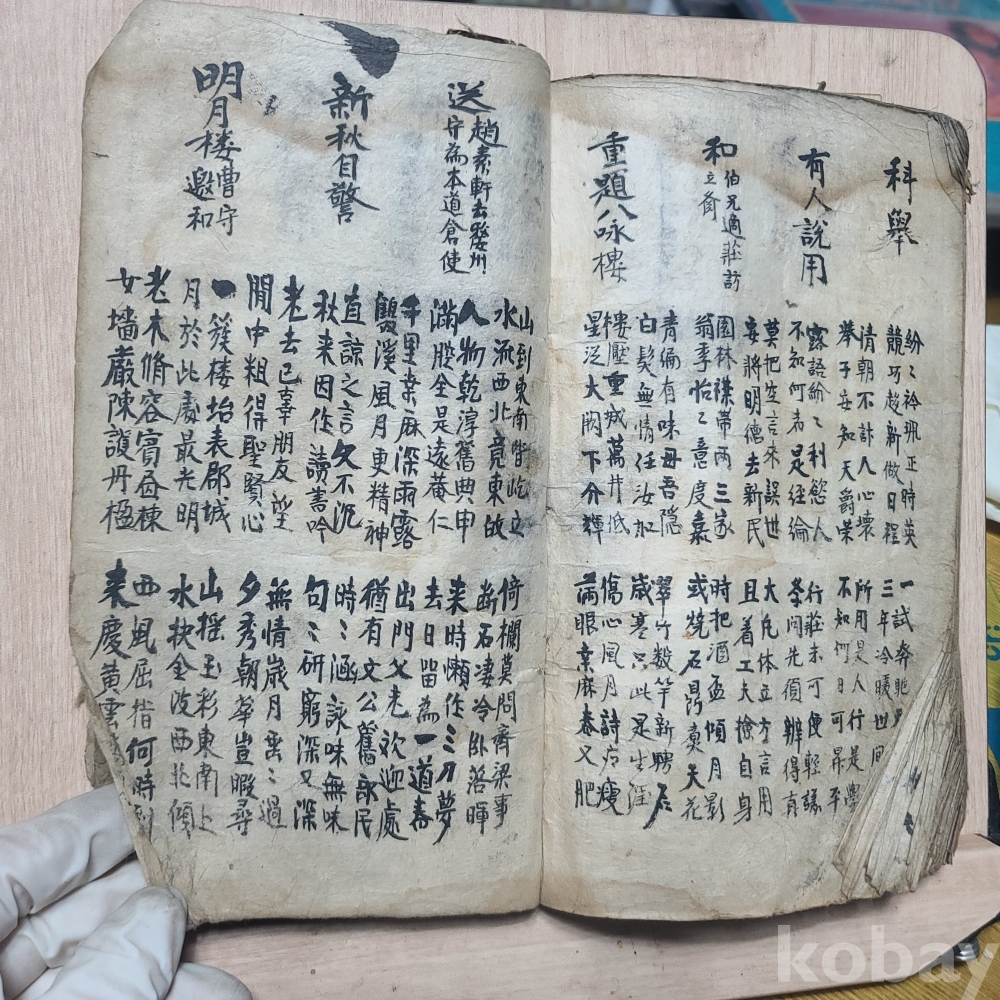 科舉
紛〻衿珮正時英
競巧趍新做日程
清朝不計人心壞
擧子安知天爵荣
一試奔馳
三年冷暖世間
所用是人行是學
不知何日可昇平
有人說用
露語紛〻利慾人
不知何者是経綸
莫把空言來誤世
妄將明德去新民
行莊未可便輕議
學问先須辨得真
大凡体立方言用
且着工夫撿自身
和伯兄適莊訪立齋
園林襟帶兩三家
翁季怡〻意度嘉
青編有味毋吾隠
白髮無情任汝加
時把酒盃傾月影
或燒石鼎煑天花
翠竹数竿新聘君
歲寒只此是生涯
重題八咏樓
樓壓重城萬井低
星泛大闕下介輝
山到東南皆屹立
水流西北竟東故
傷心風月詩應瘦
滿眼桑麻春又肥
倚欄莫問齊梁事
断石凄冷卧落暉
送趙素軒去婺州
守為本道倉使
人物乾淳舊典申
滿股全是遠菴仁
千里桑麻深雨露
雙溪風月更精神
来時懶作三刀夢
去日留為一道春
出門父老欢迎處
猶有文公舊詠民
新秋自警
直諒之言久不沉
秋来因作讀書吟
老去已辜朋友望
閒中粗得聖賢心
時〻涵詠味無味
句〻研窮深又深
無情歲月垂〻過
夕秀朝華豈暇尋
明月楼曹守邀和
一簇楼坮表郡城
月於此處最光明
老木脩容賔畚棟
女墻嚴陳護丹楹
山揺玉彩東南上
水抉金波西北傾
西風屈指何時到
来慶黄雲
kobay